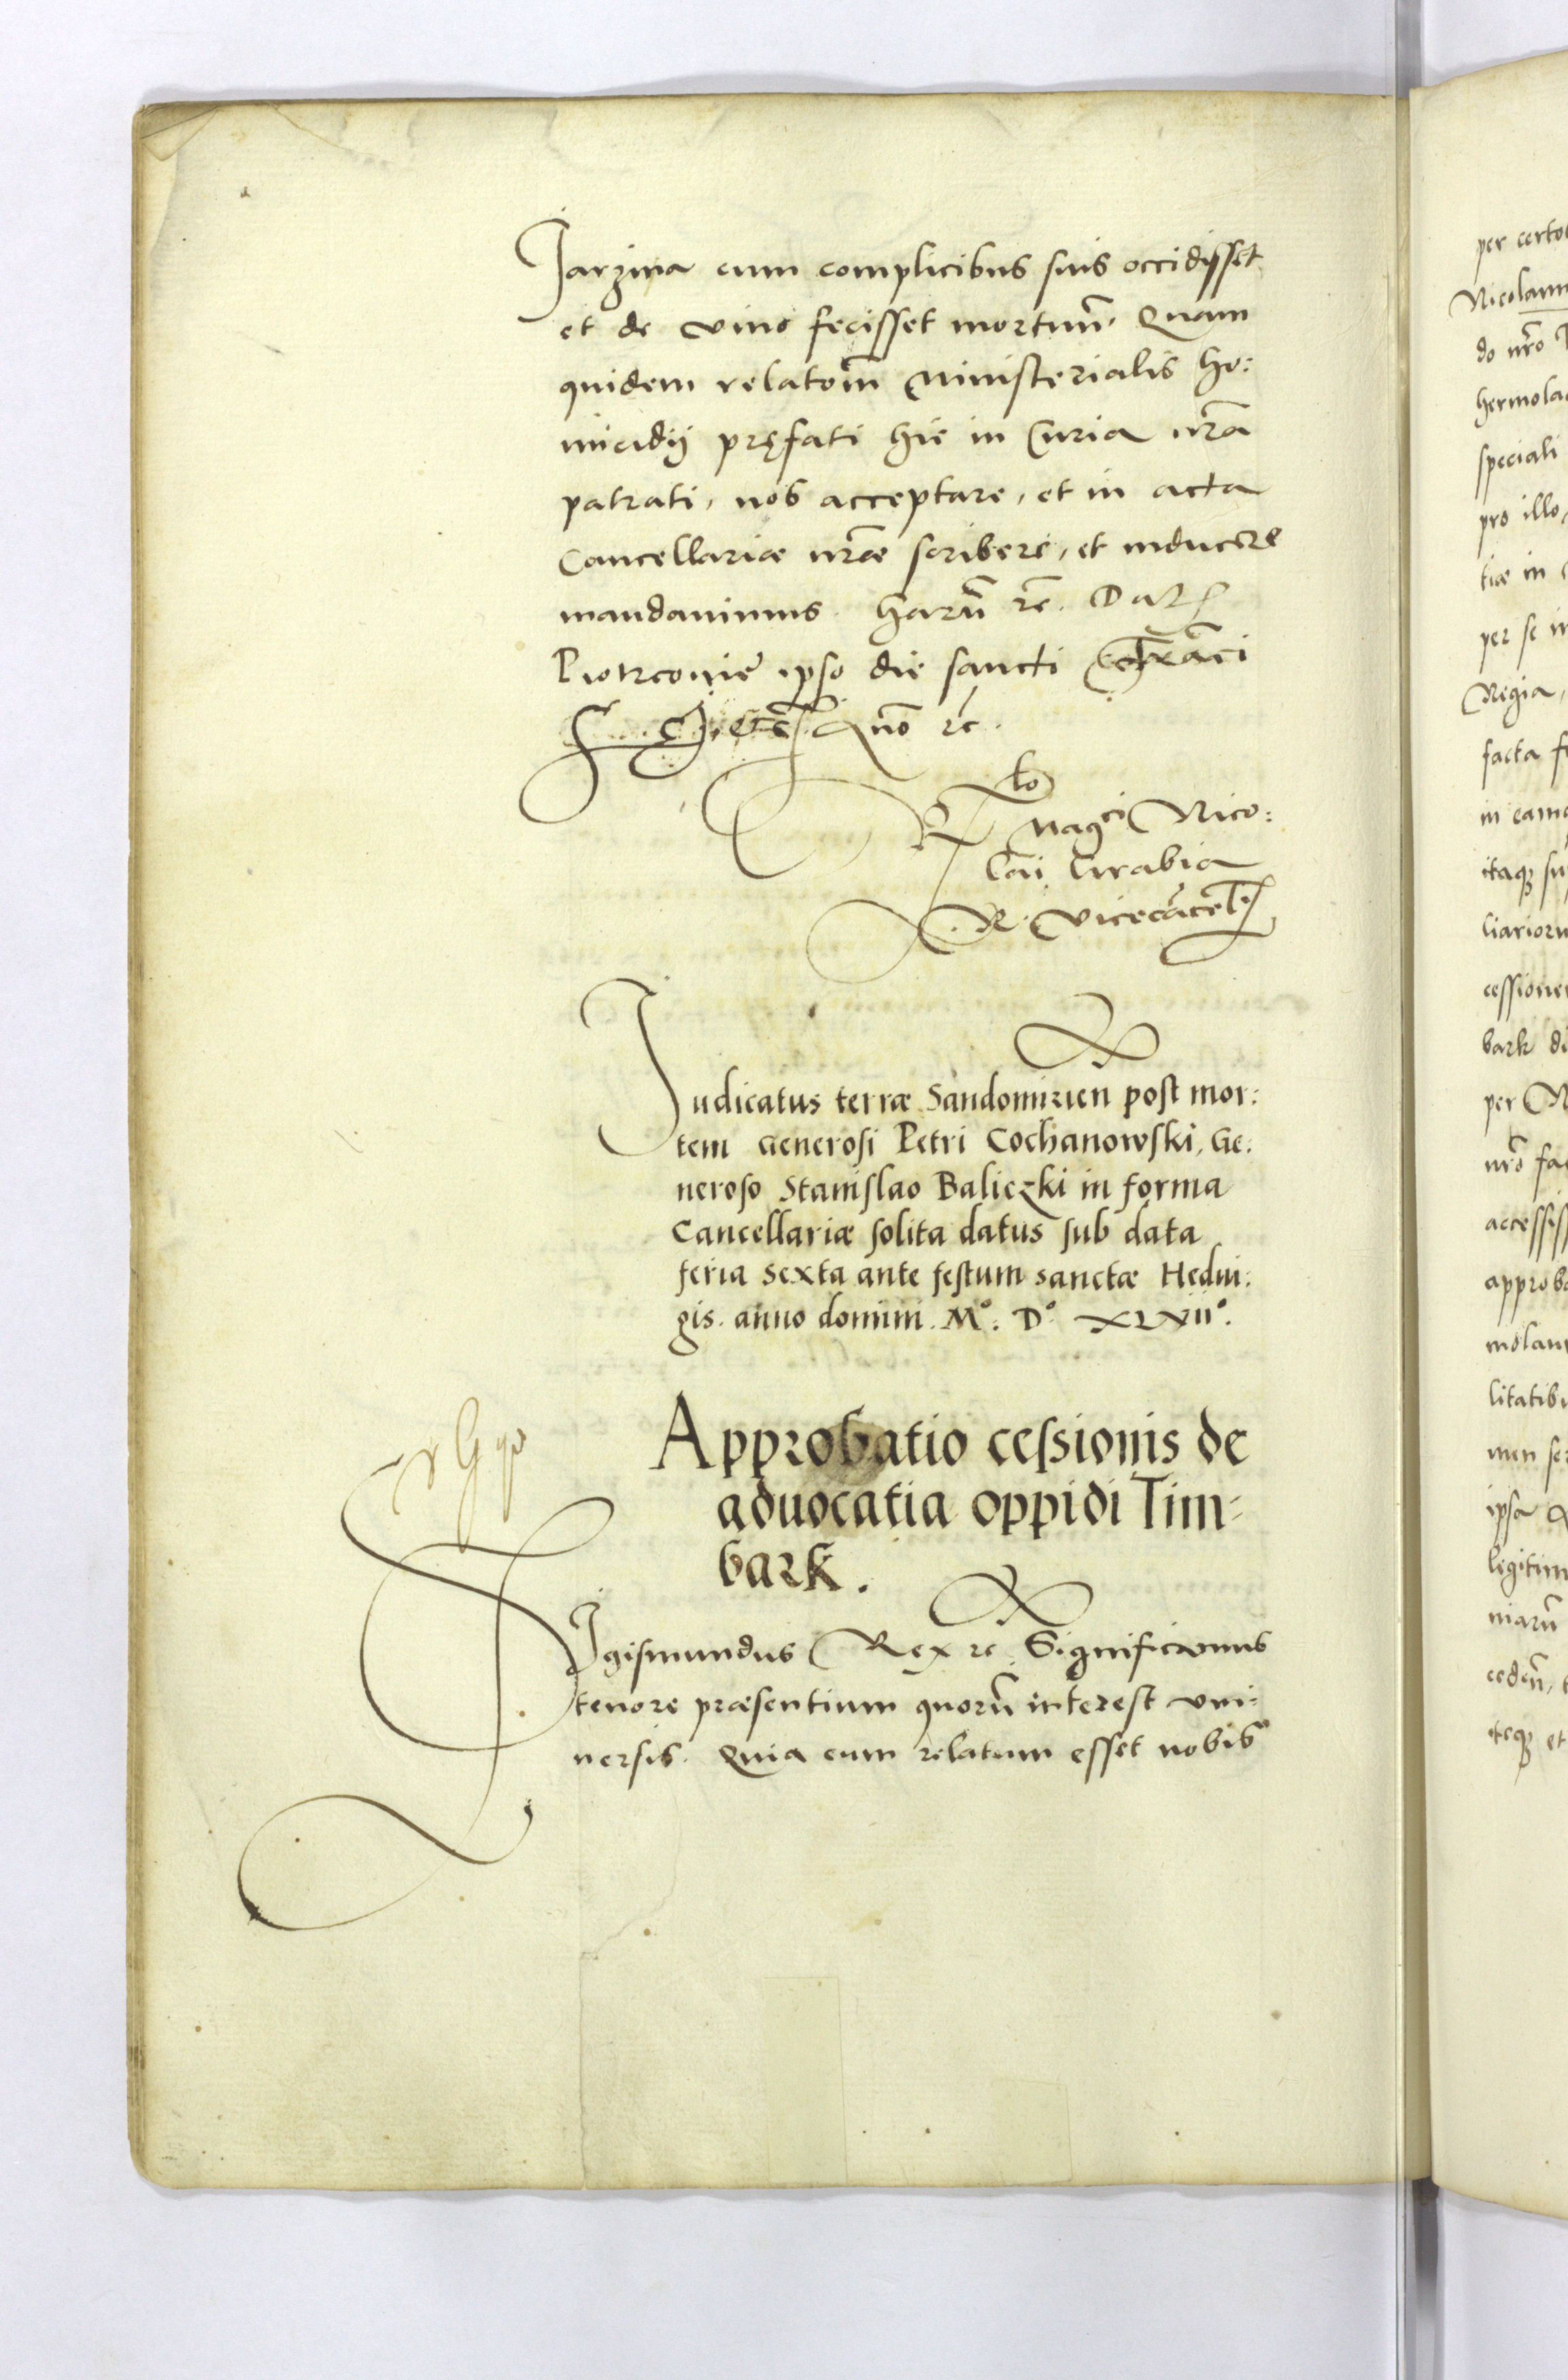 Jarzina cum complicibus suis occidisset
et de vivo fecisset mortuũ. Quam
quidem relatoẽm Ministerialis ho:
micidij pręfati hic in Curia nr̃a
patrati, nos acceptare, et in acta
Cancellariæ nr̃æ scribere, et inducere
mandavimus. Harũ rc̃. Dat
Piotrcoviæ ipso die sancti
Año rc̃.
Rto
Magci Nico:
lai Grabia
R. Vicecãcell
Judicatus terræ Sandomirien post mor:
tem Generosi Petri Cochanowski, Ge:
neroso Stanislao Baliczki in forma
Cancellariæ solita datus sub data
feria sexta ante festum sanctæ Hedui:
gis. anno domini. Mº: Dº XLVIIº.
Approbatio cessionis de
aduocatia oppidi Tim:
bark.
Sigismundus Rex rc Significamus
tenore præsentium quorũ interest vni:
uersis. Quia cum relatum esset nobis
per certos
Nicolaum
do nr̃o
hermola
speciali
pro illo
tiæ in
per se in
Regia,
facta
in eam
itaq su
liarioru
cessione
bark de
per
nr̃o fa
accessis
approba
molau
litatibu
men se
ipsa
legitim
niarũ
ceden̄,
teq et